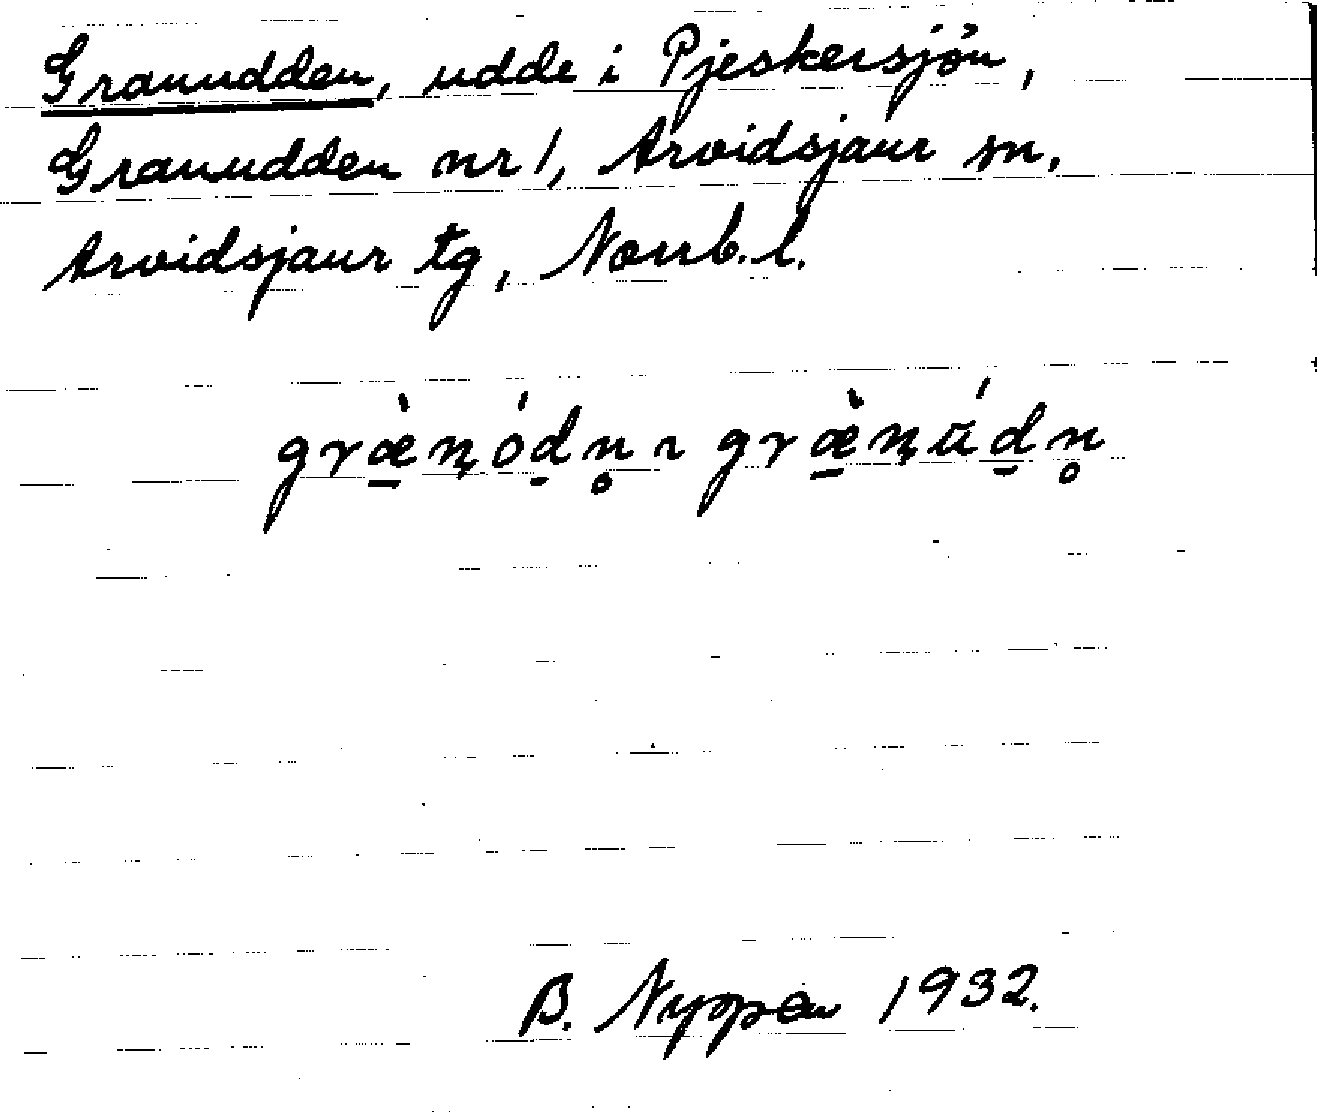 Granudden, udde i Pjeskersjön,
Granudden nr 1, Arvidsjaur sn,
Arvidsjaur tg, Norrb. l.
græ̠̀n̨ód̠n̥ ~ græ̠̀n̨ŭ́d̠n̥
B. Nyppen 1932.